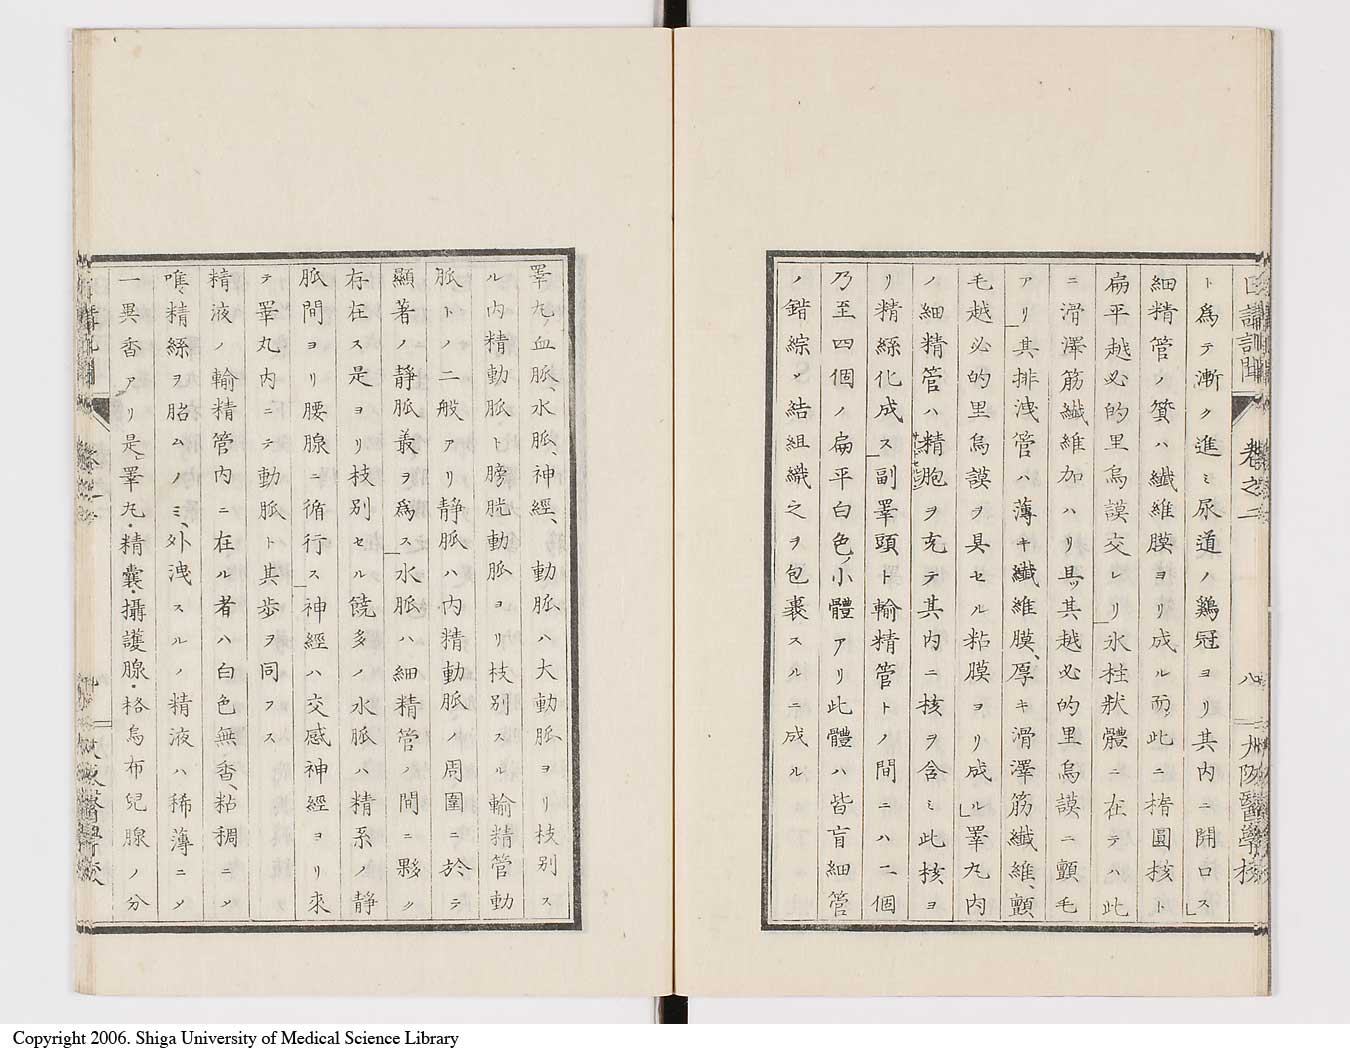 ト爲テ漸ク進ミ尿道ノ鷄冠ヨリ其内ニ開口ス」
細精管ノ質ハ纎維膜ヨリ成ル而此ニ楕圓核ト
扁平越必的里烏謨交レリ氷柱狀體ニ在テハ此
ニ滑澤筋纎維加ハリ且ツ其越必的里烏謨ニ顫毛
アリ」其排洩管ハ薄キ纎維膜、厚キ滑澤筋纎維、顫
毛越必的里烏謨ヲ具セル粘膜ヨリ成ル」睪丸内
ノ細精管ハ精胞ヲ充テ其内ニ核ヲ含ミ此核ヨ
リ精絲化成ス」副睪頭ト輸精管トノ間ニハ二個
乃至四個ノ扁平白色ノ小體アリ此體ハ皆盲細管
ノ錯綜ソ結組織之ヲ包裹スルニ成ル
卷之二
八
大阪醫學校
睪丸ノ血脈、水脈、神經、動脈ハ大動脈ヨリ枝別ス
ル内精動脈ト膀胱動脈ヨリ枝別スル輸精管動
脈トノ二般アリ静脈ハ内精動脈ノ周圍ニ於テ
顯著ノ静脈叢ヲ爲ス」水脈ハ細精管ノ間ニ夥ク
存在ス是ヨリ枝別セル饒多ノ水脈ハ精系ノ静
脈間ヨリ腰腺ニ循行ス」神經ハ交感神經ヨリ來
テ睪丸内ニテ動脈ト其歩ヲ同フス
精液ノ輸精管内ニ在ル者ハ白色無香、粘稠ニメ
唯精絲ヲ胎ムノミ、外洩スルノ精液ハ稀薄ニメ
一異香アリ是睪丸・精囊・攝護腺・格烏布兒腺ノ分